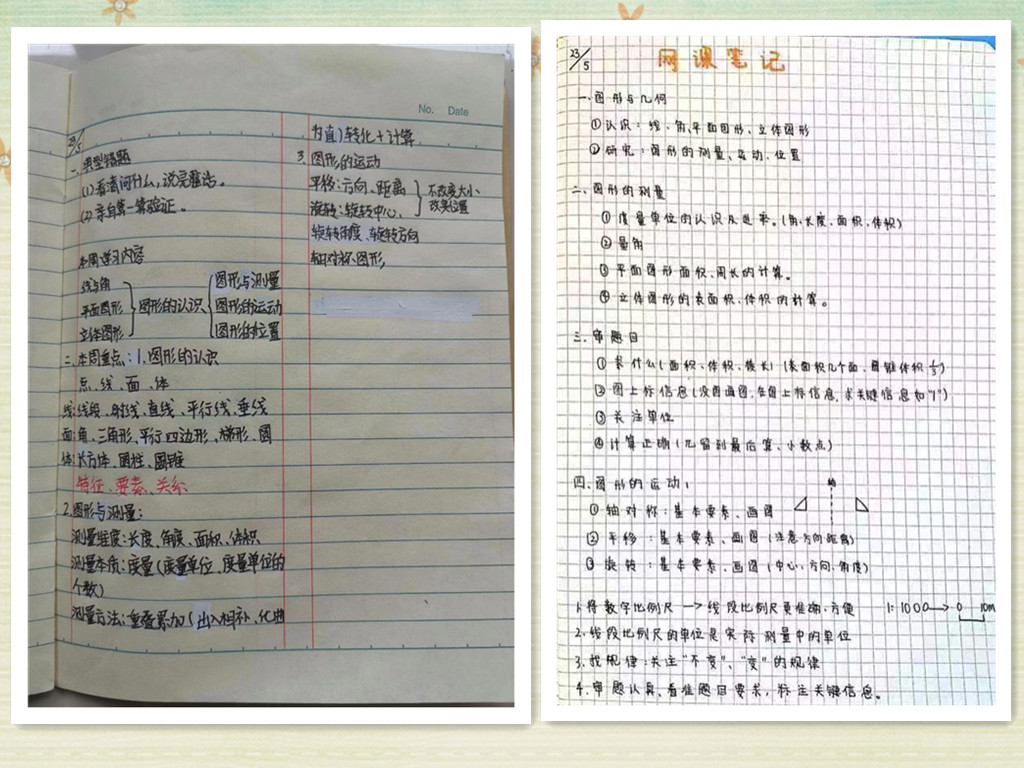 No. Date
23/5
一、典型错题
(1) 看清问什么,说完整话。
(2) 亲自算一算验证。
本周学习内容
线与角
平面图形
立体图形
图形的认识
图形与测量
图形的运动
图形的位置
二、本周重点:1、图形的认识
点、线、面、体
线:线段、射线、直线、平行线、垂线
面:角、三角形、平行四边形、梯形、圆
体:长方体、圆柱、圆锥
特征、要素、关系
2.图形与测量:
测量维度:长度、角度、面积、体积
测量本质:度量(度量单位、度量单位的
个数)
测量方法:重叠累加(出入相补、化曲
为直)转化+计算
3.图形的运动
平移:方向、距离
旋转:旋转中心、
旋转角度、旋转方向
不改变大小
改变位置
轴对称图形,
23/5
网课笔记
一、图形与几何
①认识:线、角、平面图形、立体图形
②研究:图形的测量、运动、位置
二、图形的测量
①度量单位的认识及进率。(角、长度、面积、体积)
②量角
③平面图形面积、周长的计算。
④立体图形的表面积、体积的计算。
三、审题目
①求什么(面积、体积、棱长)(表面积几个面、圆锥体积1/3)
②图上标信息(没图画图,在图上标信息,求关键信息如"1")
③关注单位
④计算正确(π留到最后算、小数点)
四、图形的运动:
①轴对称:基本要素、画图
②平移:基本要素、画图(注意方向距离)
③旋转:基本要素、画图(中心、方向、角度)
1.将数字比例尺→线段比例尺更准确、方便 1:1000→0 10m
2.线段比例尺的单位是实际测量中的单位
3.找规律:关注"不变"、"变"的规律
4.审题认真、看准题目要求,标注关键信息。